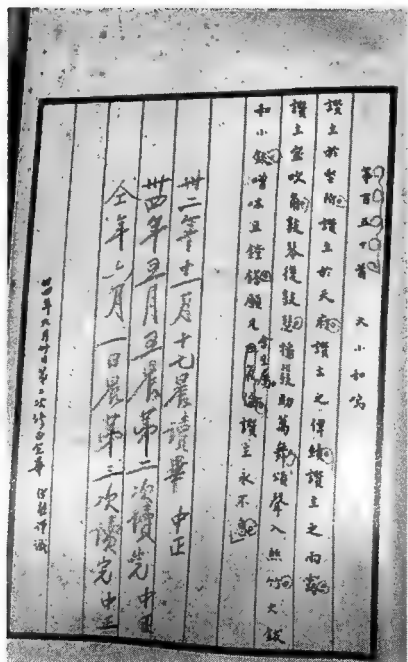 第百五十首 大小和鳴
讚主於聖所讚主於天府讚主之偉績讚主之
讚主宜吹角鼓琴復鼓瑟播鼗助萬舞頌聲入絲竹大鈸
和小鈸噌吰且鏗鏘願凡含生屬讚主永不息
卅二年十一月十七晨讀畢 中正
卅四年五月五晨第二次讀完 中正
仝年八月一日晨第三次讀完 中正
年六月廿日第二次修正完畢 經熊謹識